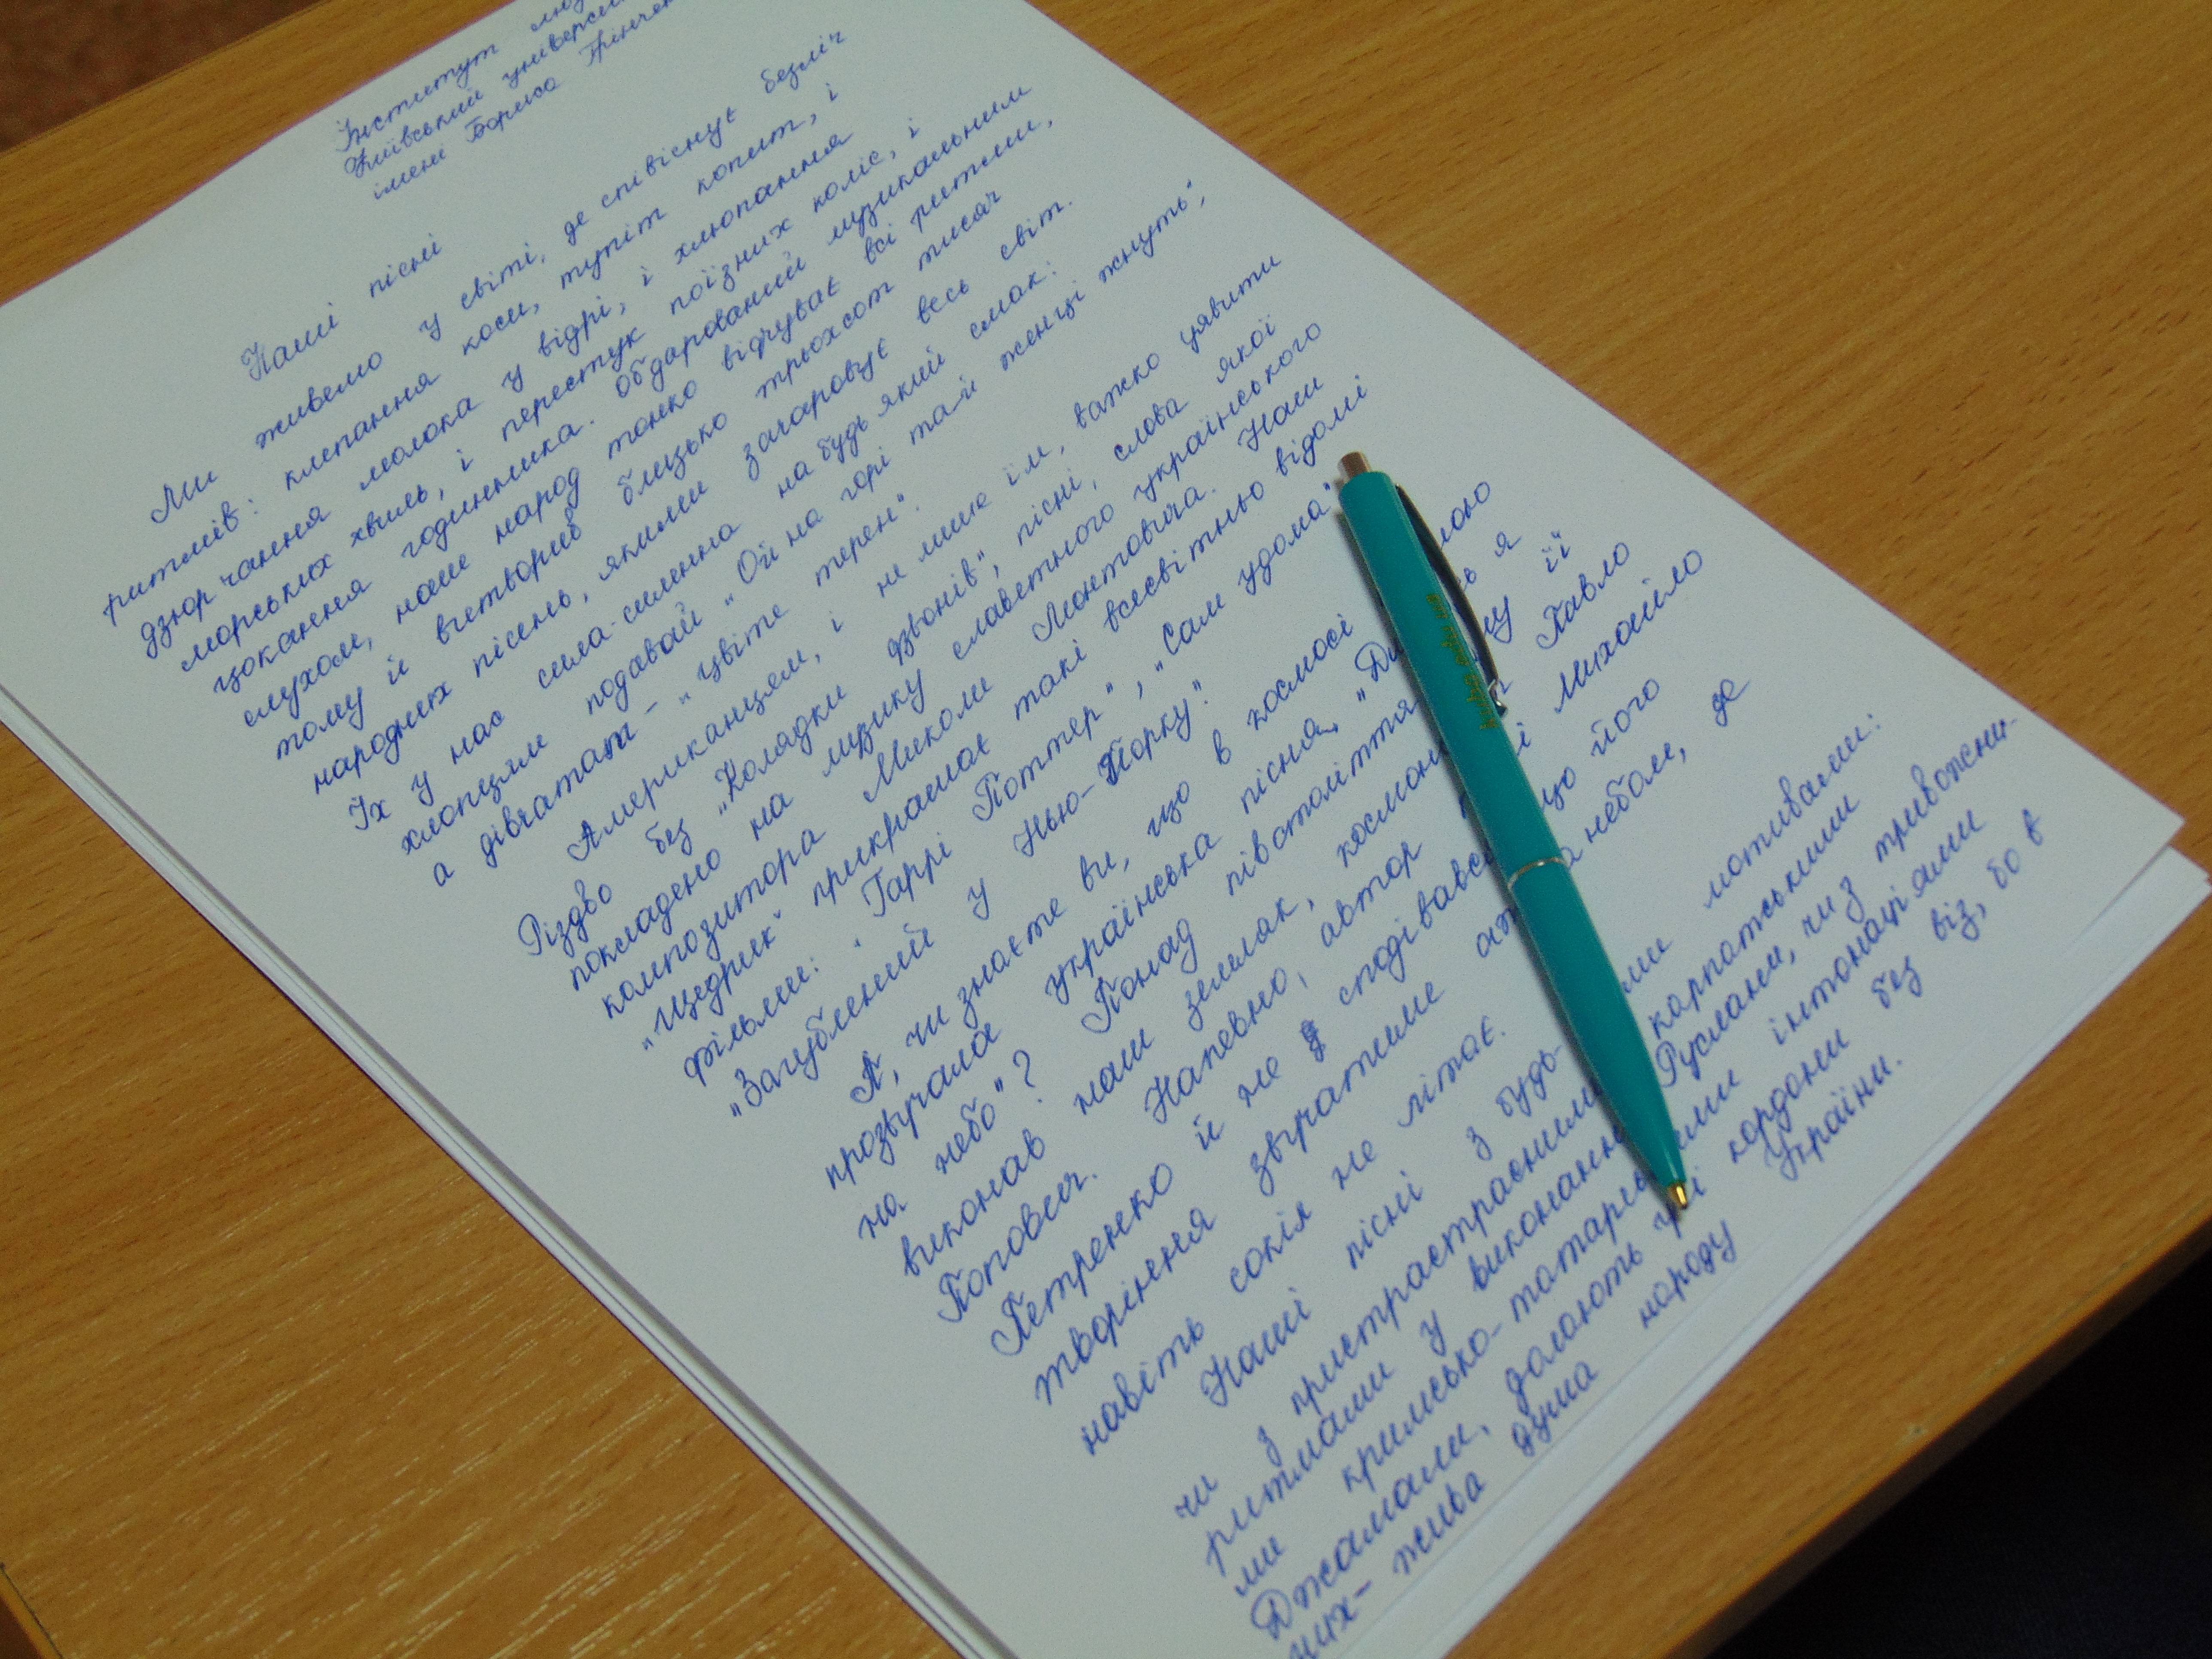 Інститут
Київський
імені Бориса Грінчен
Наші пісні
Ми живемо у світі, де співіснує безліч
ритмів: клепання коси, тупіт копит, і
дзюрчання молока у відрі, і хлюпання
морських хвиль, і перестук поїзних коліс, і
цокання годинника. Обдарований музикальним
слухом, наше народ тонко відчуває всі ритми,
тому й витворив близько трьохсот тисяч
народних пісень, якими зачаровує весь світ.
Їх у нас сила-силенна на будь який смак:
хлопцям подавай „Ой на горі та й женці жнуть",
а дівчатам - „Цвіте терен".
Американцям, і не лише їм, важко уявити
Різдво без „Колядки дзвонів", пісні, слова якої
покладено на музику славетного українського
композитора Миколи Леонтовича. Наш
„Щедрик" прикрашає такі всесвітньо відомі
фільми: „Гаррі Поттер", „Сам удома"
„Загублений у Нью-Йорку".
А, чи знаєте ви, що в космосі
прозвучала українська пісня „Ди я
на небо"? Понад півстоліття її
виконав наш земляк, Павло
Попович. Напевно, автор Михайло
Петренко й не сподівався що його
творіння звучатиме а небом, де
навіть сокіл не літає.
Наші пісні з будь- мотивами:
чи з пристрасними карпатськими
ритмами у виконанні Руслани, чи з тривожни-
ми кримсько-татарськими інтонаціями
Джамали, долають усі кордони без віз, бо в
них - жива душа народу України.